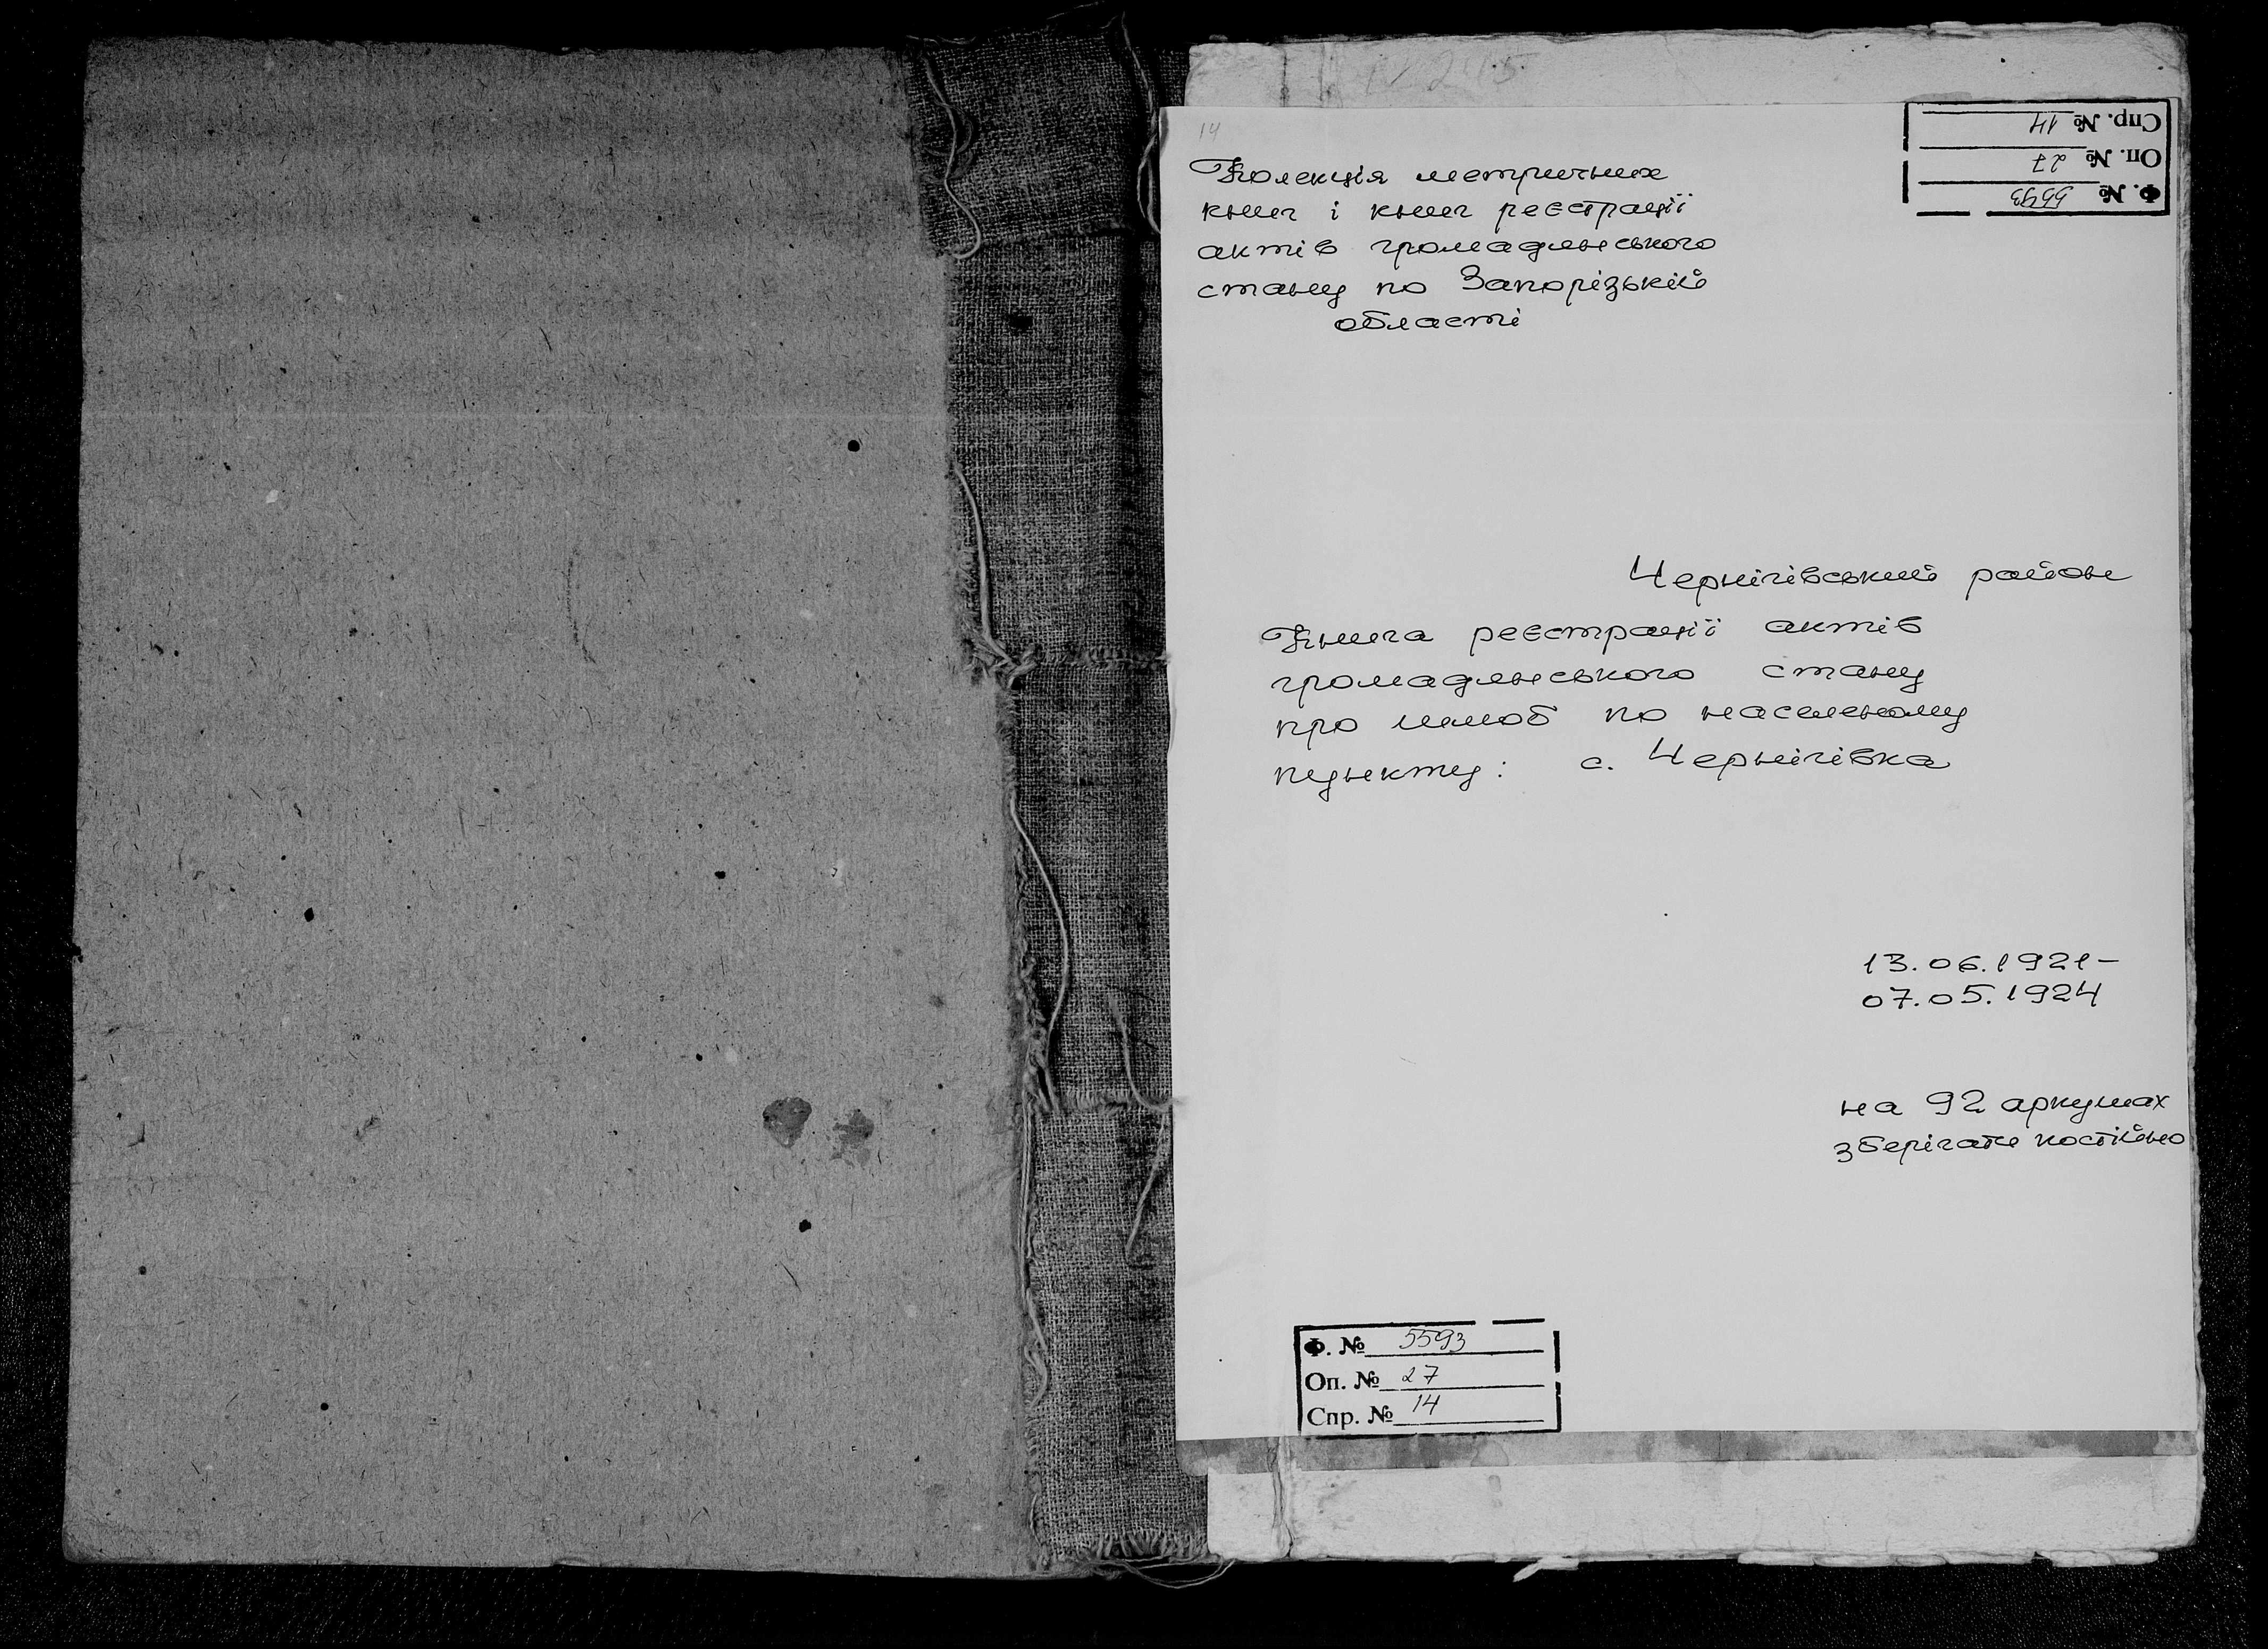 14
Спр. № 14
Оп. № 27
Ф. № 5593
Колекція метричних
книг і книг реєстрації
актів громадянського
стану по Запорізькій
області
Чернігівський район
Книга реєстрації актів
громадянського стану
про шлюб по населеному
пункту: с. Чернігівка
13.06.1921-
07.05.1924
на 92 аркушах
зберігати постійно
Ф. № 5593
Оп. № 27
Спр. № 14